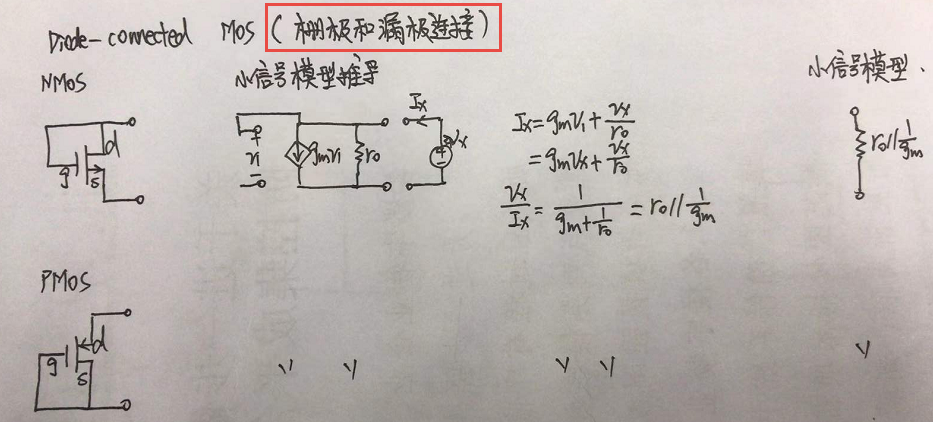 Diode-connected MOS (栅极和漏极连接)
NMOS
小信号模型推导
小信号模型.
d
g
s
+
v1
-
gmv1
ro
Ix
+
-
vx
Ix=gmv1+vx/ro
=gmvx+vx/ro
vx/Ix=1/(gm+1/ro)=ro//1/gm
ro//1/gm
PMOS
d
g
s